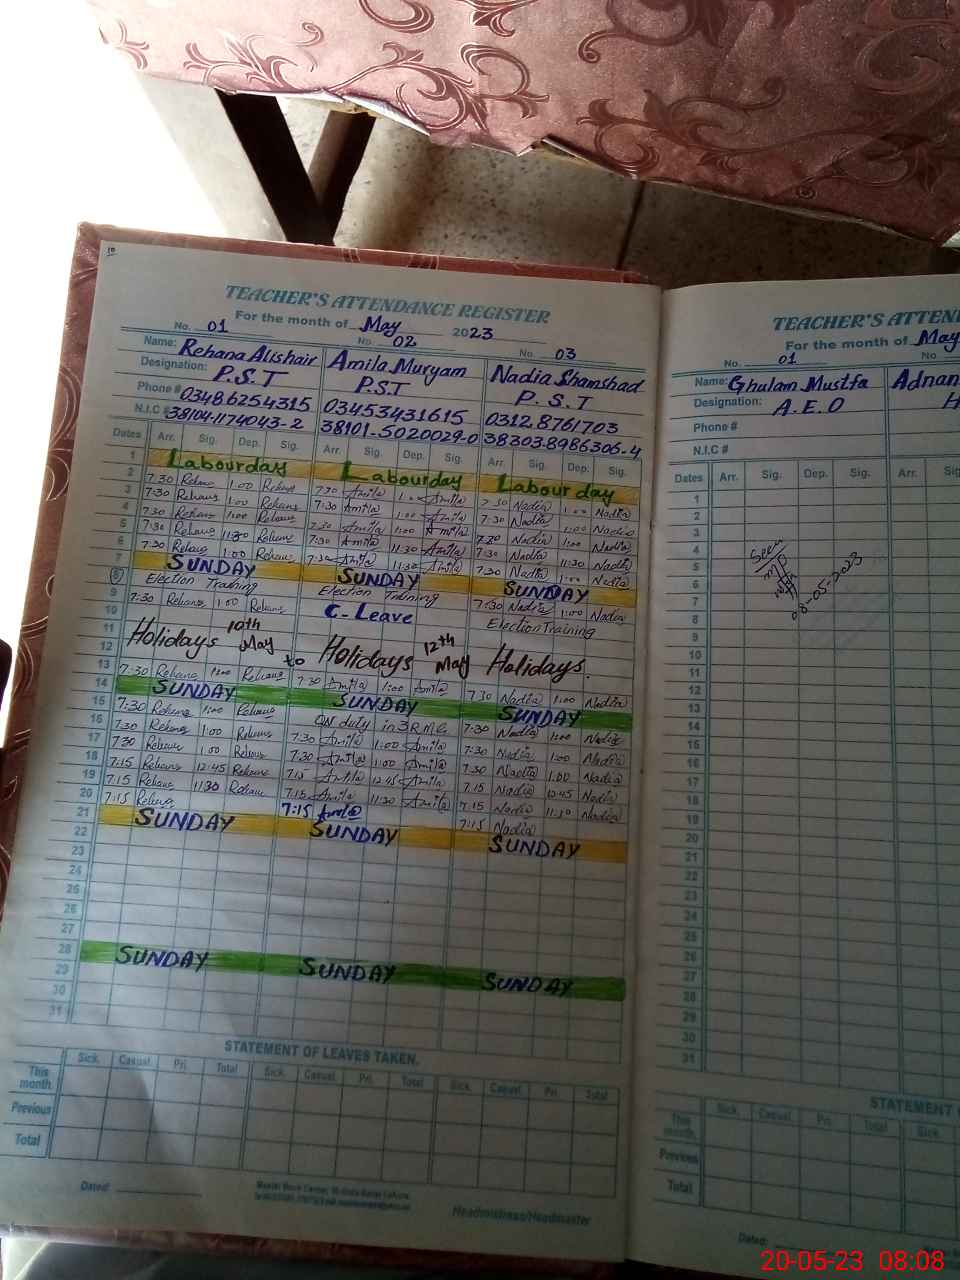 10
TEACHER'S ATTENDANCE REGISTER
For the month of May 2023
No. 01 No. 02 No. 03
Name: Rehana Alishair Amila Muryam Nadia Shamshad
Designation: P.S.T P.S.T P.S.T
Phone # 03486254315 03453431615 0312.8761703
N.I.C # 38104-1174043-2 38101-5020029-0 38303-8986306-4
Dates Arr. Sig. Dep. Sig. Arr. Sig. Dep. Sig. Arr. Sig. Dep. Sig.
1 Labourday Labourday Labour day
2 7:30 Rehana 1:00 Rehana 7:30 Amila 1:00 Amila 7:30 Nadia 1:00 Nadia
3 7:30 Rehana 1:00 Rehana 7:30 Amila 1:00 Amila 7:30 Nadia 1:00 Nadia
4 7:30 Rehana 1:00 Rehana 7:30 Amila 1:00 Amila 7:30 Nadia 1:00 Nadia
5 7:30 Rehana 11:30 Rehana 7:30 Amila 11:30 Amila 7:30 Nadia 11:30 Nadia
6 7:30 Rehana 1:00 Rehana 7:30 Amila 11:30 Amila 7:30 Nadia 1:00 Nadia
7 SUNDAY SUNDAY SUNDAY
8 Election Training Election Training 7:30 Nadia 1:00 Nadia
9 7:30 Rehana 1:00 Rehana C-Leave Election Training
10
11 Holidays 10th May to Holidays 12th May Holidays.
12
13 7:30 Rehana 1:00 Rehana 7:30 Amila 1:00 Amila 7:30 Nadia 1:00 Nadia
14 SUNDAY SUNDAY SUNDAY
15 7:30 Rehana 1:00 Rehana ON duty in 7:30 Nadia 1:00 Nadia
16 7:30 Rehana 1:00 Rehana 7:30 Amila 1:00 Amila 7:30 Nadia 1:00 Nadia
17 7:30 Rehana 1:00 Rehana 7:30 Amila 1:00 Amila 7:30 Nadia 1:00 Nadia
18 7:15 Rehana 12:45 Rehana 7:15 Amila 12:45 Amila 7:15 Nadia 12:45 Nadia
19 7:15 Rehana 11:30 Rehana 7:15 Amila 11:30 Amila 7:15 Nadia 11:30 Nadia
20 7:15 Rehana 7:15 Amila 7:15 Nadia
21 SUNDAY SUNDAY SUNDAY
22
23
24
25
26
27
28 SUNDAY SUNDAY SUNDAY
29
30
31
STATEMENT OF LEAVES TAKEN.
Sick. Casual. Pri. Total Sick. Casual. Pri. Total Sick. Casual. Pri. Total
This month.
Previous
Total
Dated:
Headmistress/Headmaster
TEACHER'S ATTEN
For the month of May
No. 01 No.
Name: Ghulam Mustfa Adnan
Designation: A.E.O H
Phone #
N.I.C #
Dates Arr. Sig. Dep. Sig. Arr. Sig.
1
2
3
4 Seen
5
6
7 08-05-2023
8
9
10
11
12
13
14
15
16
17
18
19
20
21
22
23
24
25
26
27
28
29
30
31
STATEMENT
Sick. Casual. Pri. Total Sick.
This month.
Previous
Total
Dated:
20-05-23 08:08